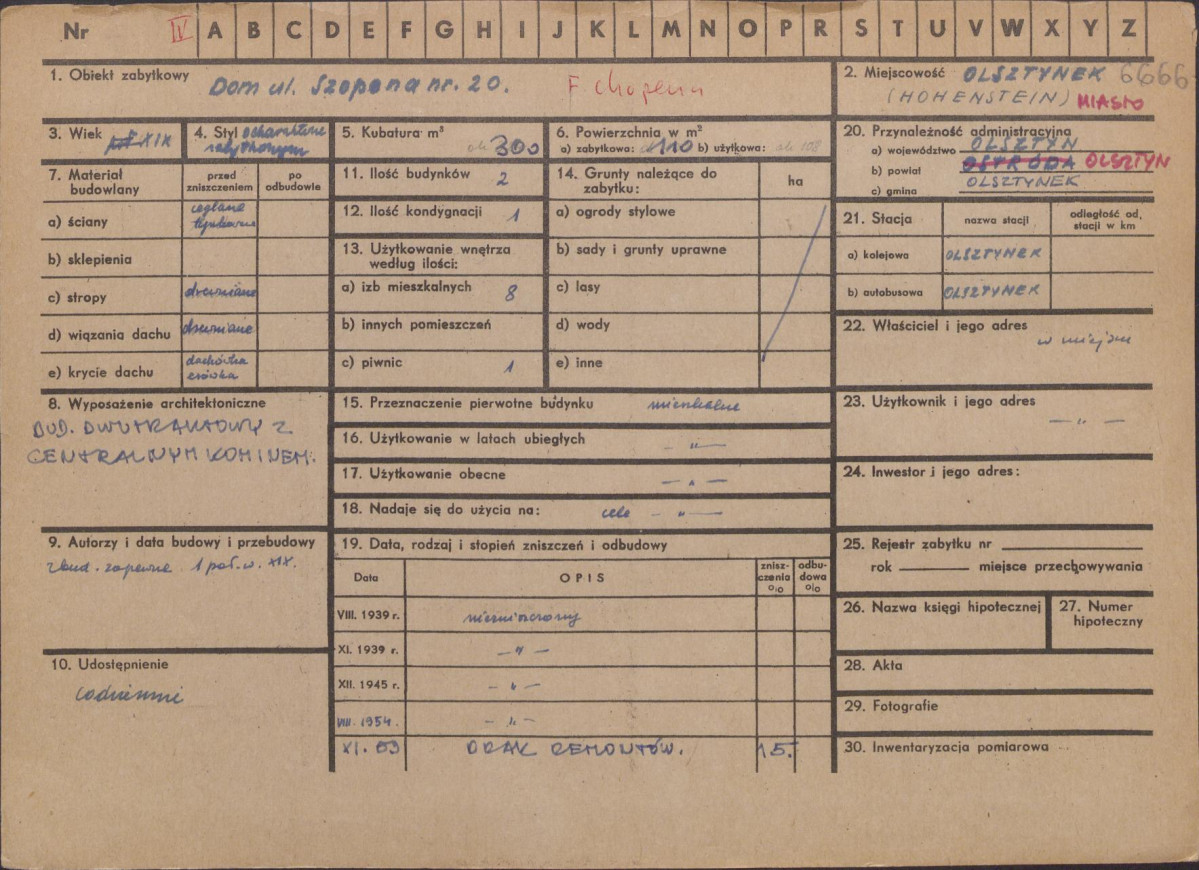 Nr IV A B C D E F G H I J K L M N O P R S T U V W X Y Z
1. Obiekt zabytkowy Dom ul. Szopena nr. 20. F. Chopena
2. Miejscowość OLSZTYNEK 6666
(HOHENSTEIN) MIASTO
3. Wiek XIX
4. Styl o charakterze
zabytkowym
5. Kubatura m³
ok 300
6. Powierzchnia w m²
a) zabytkowa: ok 110 b) użytkowa: ok 108
7. Materiał
budowlany
przed
zniszczeniem
po
odbudowie
a) ściany ceglane
tynkowane
b) sklepienia
c) stropy drewniane
d) wiązania dachu drewniane
e) krycie dachu dachówka
esówka
8. Wyposażenie architektoniczne
BUD. DWUTRAKTOWY Z
CENTRALNYM KOMINEM.
9. Autorzy i data budowy i przebudowy
zbud. zapewne 1 poł. w. XIX.
10. Udostępnienie
codziennie
11. Ilość budynków 2
12. Ilość kondygnacji 1
13. Użytkowanie wnętrza
według ilości:
a) izb mieszkalnych 8
b) innych pomieszczeń
c) piwnic 1
14. Grunty należące do
zabytku:
ha
a) ogrody stylowe
b) sady i grunty uprawne
c) lasy
d) wody
e) inne
15. Przeznaczenie pierwotne budynku mieszkalne
16. Użytkowanie w latach ubiegłych — „ —
17. Użytkowanie obecne — „ —
18. Nadaje się do użycia na: cele — „ —
19. Data, rodzaj i stopień zniszczeń i odbudowy
Data
OPIS
znisz-
czenia
o/o
odbu-
dowa
o/o
VIII. 1939 r. niezniszczony
XI. 1939 r. — „ —
XII. 1945 r. — „ —
VIII. 1954. — „ —
XI. 63 BRAK REMONTÓW. 15.
20. Przynależność administracyjna
a) województwo OLSZTYN
b) powiat OSTRÓDA OLSZTYN
c) gmina OLSZTYNEK
21. Stacja
nazwa stacji
odległość od
stacji w km
a) kolejowa OLSZTYNEK
b) autobusowa OLSZTYNEK
22. Właściciel i jego adres
w miejscu
23. Użytkownik i jego adres
— „ —
24. Inwestor i jego adres:
25. Rejestr zabytku nr
rok miejsce przechowywania
26. Nazwa księgi hipotecznej
27. Numer
hipoteczny
28. Akta
29. Fotografie
30. Inwentaryzacja pomiarowa